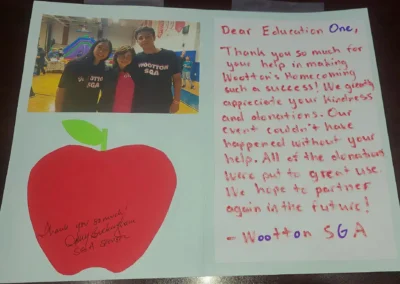 WOOTTON
SGA
WOOTTON
SGA
Thank you so much
Dear Education One,
Thank you so much for
your help in making
Wootton's Homecoming
such a success! We greatly
appreciate your kindness
and donations. Our
event couldn't have
happened without your
help. All of the donations
were put to great use
We hope to partner
again in the future!
- Wootton SGA